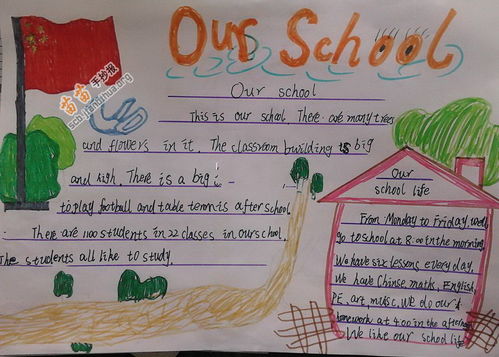 Our School
苗苗手抄报
sc.jianbihua.org
Our school
This is our school. There are many trees
and flowers in it. The classroom building is big
and high. There is a big
to play football and table tennis after school
There are 1100 students in 22 classes in our school.
The students all like to study.
Our
school life
From Monday to Friday, we
go to school at 8:00 in the morning
We have six lessons every day.
We have Chinse maths, English,
PE, art, music. We do our
homework at 4:00 in the afternoon
We like our school life